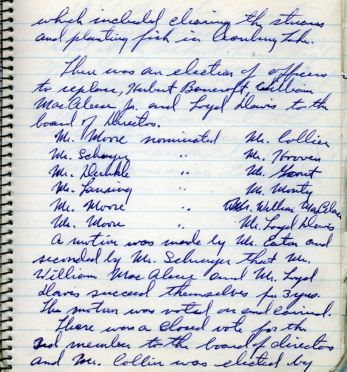 which included cleaning the streams
and planting fish in Cranberry Lake.
There was an election of officers
to replace, Hubert Bancroft William
MacAleese Jr. and Loyd Davis to the
board of Directors.
Mr. Moore nominated Mr. Collier
Mr. Schuyer " Mr. Hoover
Mr. " Mr.
Mr. Lansing " Mr. Monty
Mr. Moore " Mr. William MacAleese
Mr. Moore " Mr. Loyd Davis
A motion was made by Mr. Eaton and
seconded by Mr. Schuyer that Mr.
William MacAleese and Mr. Loyd
Davis succeed themselves for 3 yrs.
The motion was voted on and carried.
There was a closed vote for the
3rd member to the board of directors
and Mr. Collier was elected by